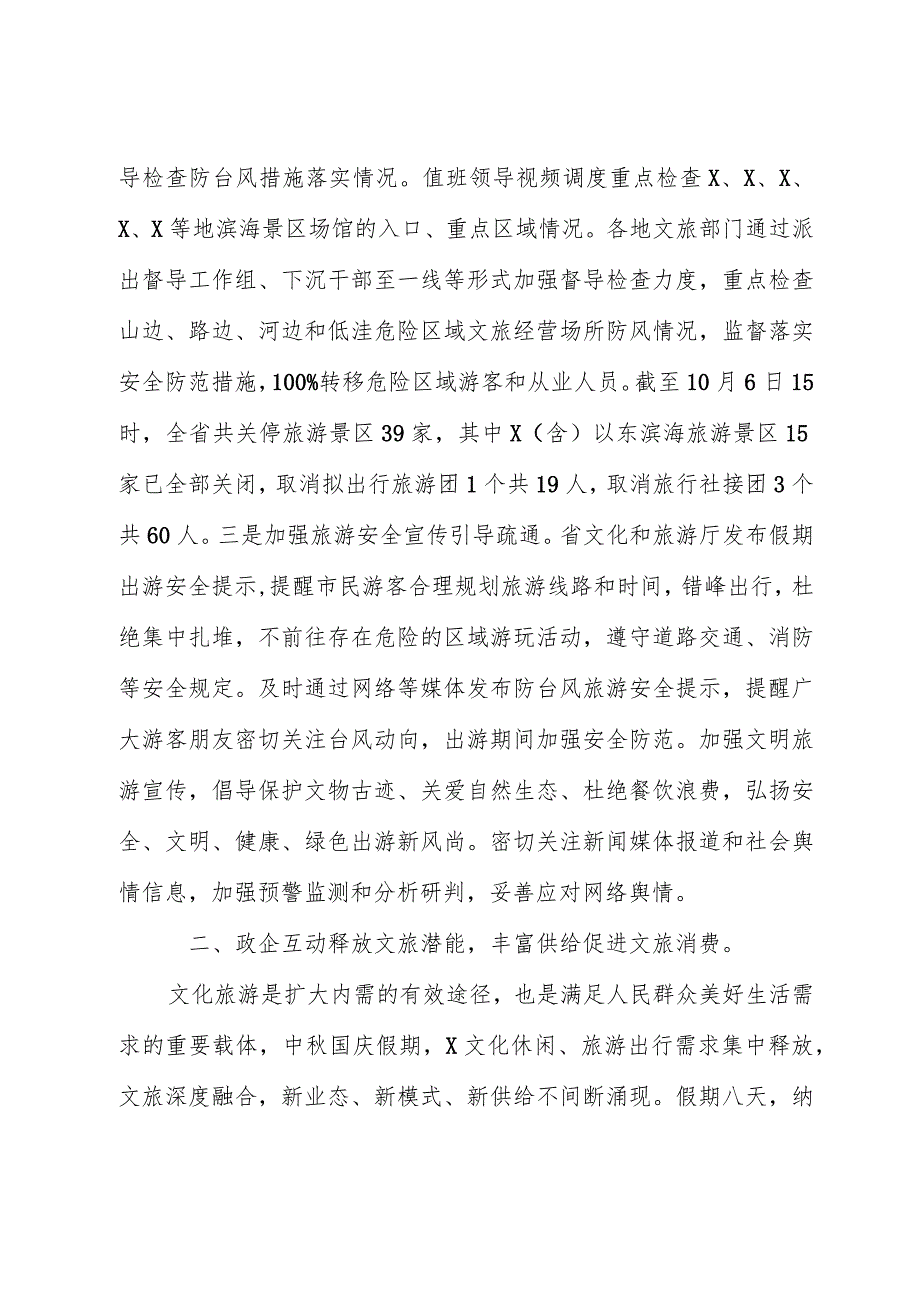 导检查防台风措施落实情况。值班领导视频调度重点检查 X、X、X、
X、X 等地滨海景区场馆的入口、重点区域情况。各地文旅部门通过派
出督导工作组、下沉干部至一线等形式加强督导检查力度，重点检查
山边、路边、河边和低洼危险区域文旅经营场所防风情况，监督落实
安全防范措施，100%转移危险区域游客和从业人员。截至 10 月 6 日 15
时，全省共关停旅游景区 39 家，其中 X（含）以东滨海旅游景区 15
家已全部关闭，取消拟出行旅游团 1 个共 19 人，取消旅行社接团 3 个
共 60 人。三是加强旅游安全宣传引导疏通。省文化和旅游厅发布假期
出游安全提示,提醒市民游客合理规划旅游线路和时间，错峰出行，杜
绝集中扎堆，不前往存在危险的区域游玩活动，遵守道路交通、消防
等安全规定。及时通过网络等媒体发布防台风旅游安全提示，提醒广
大游客朋友密切关注台风动向，出游期间加强安全防范。加强文明旅
游宣传，倡导保护文物古迹、关爱自然生态、杜绝餐饮浪费，弘扬安
全、文明、健康、绿色出游新风尚。密切关注新闻媒体报道和社会舆
情信息，加强预警监测和分析研判，妥善应对网络舆情。
二、政企互动释放文旅潜能，丰富供给促进文旅消费。
文化旅游是扩大内需的有效途径，也是满足人民群众美好生活需
求的重要载体，中秋国庆假期，X 文化休闲、旅游出行需求集中释放，
文旅深度融合，新业态、新模式、新供给不间断涌现。假期八天，纳